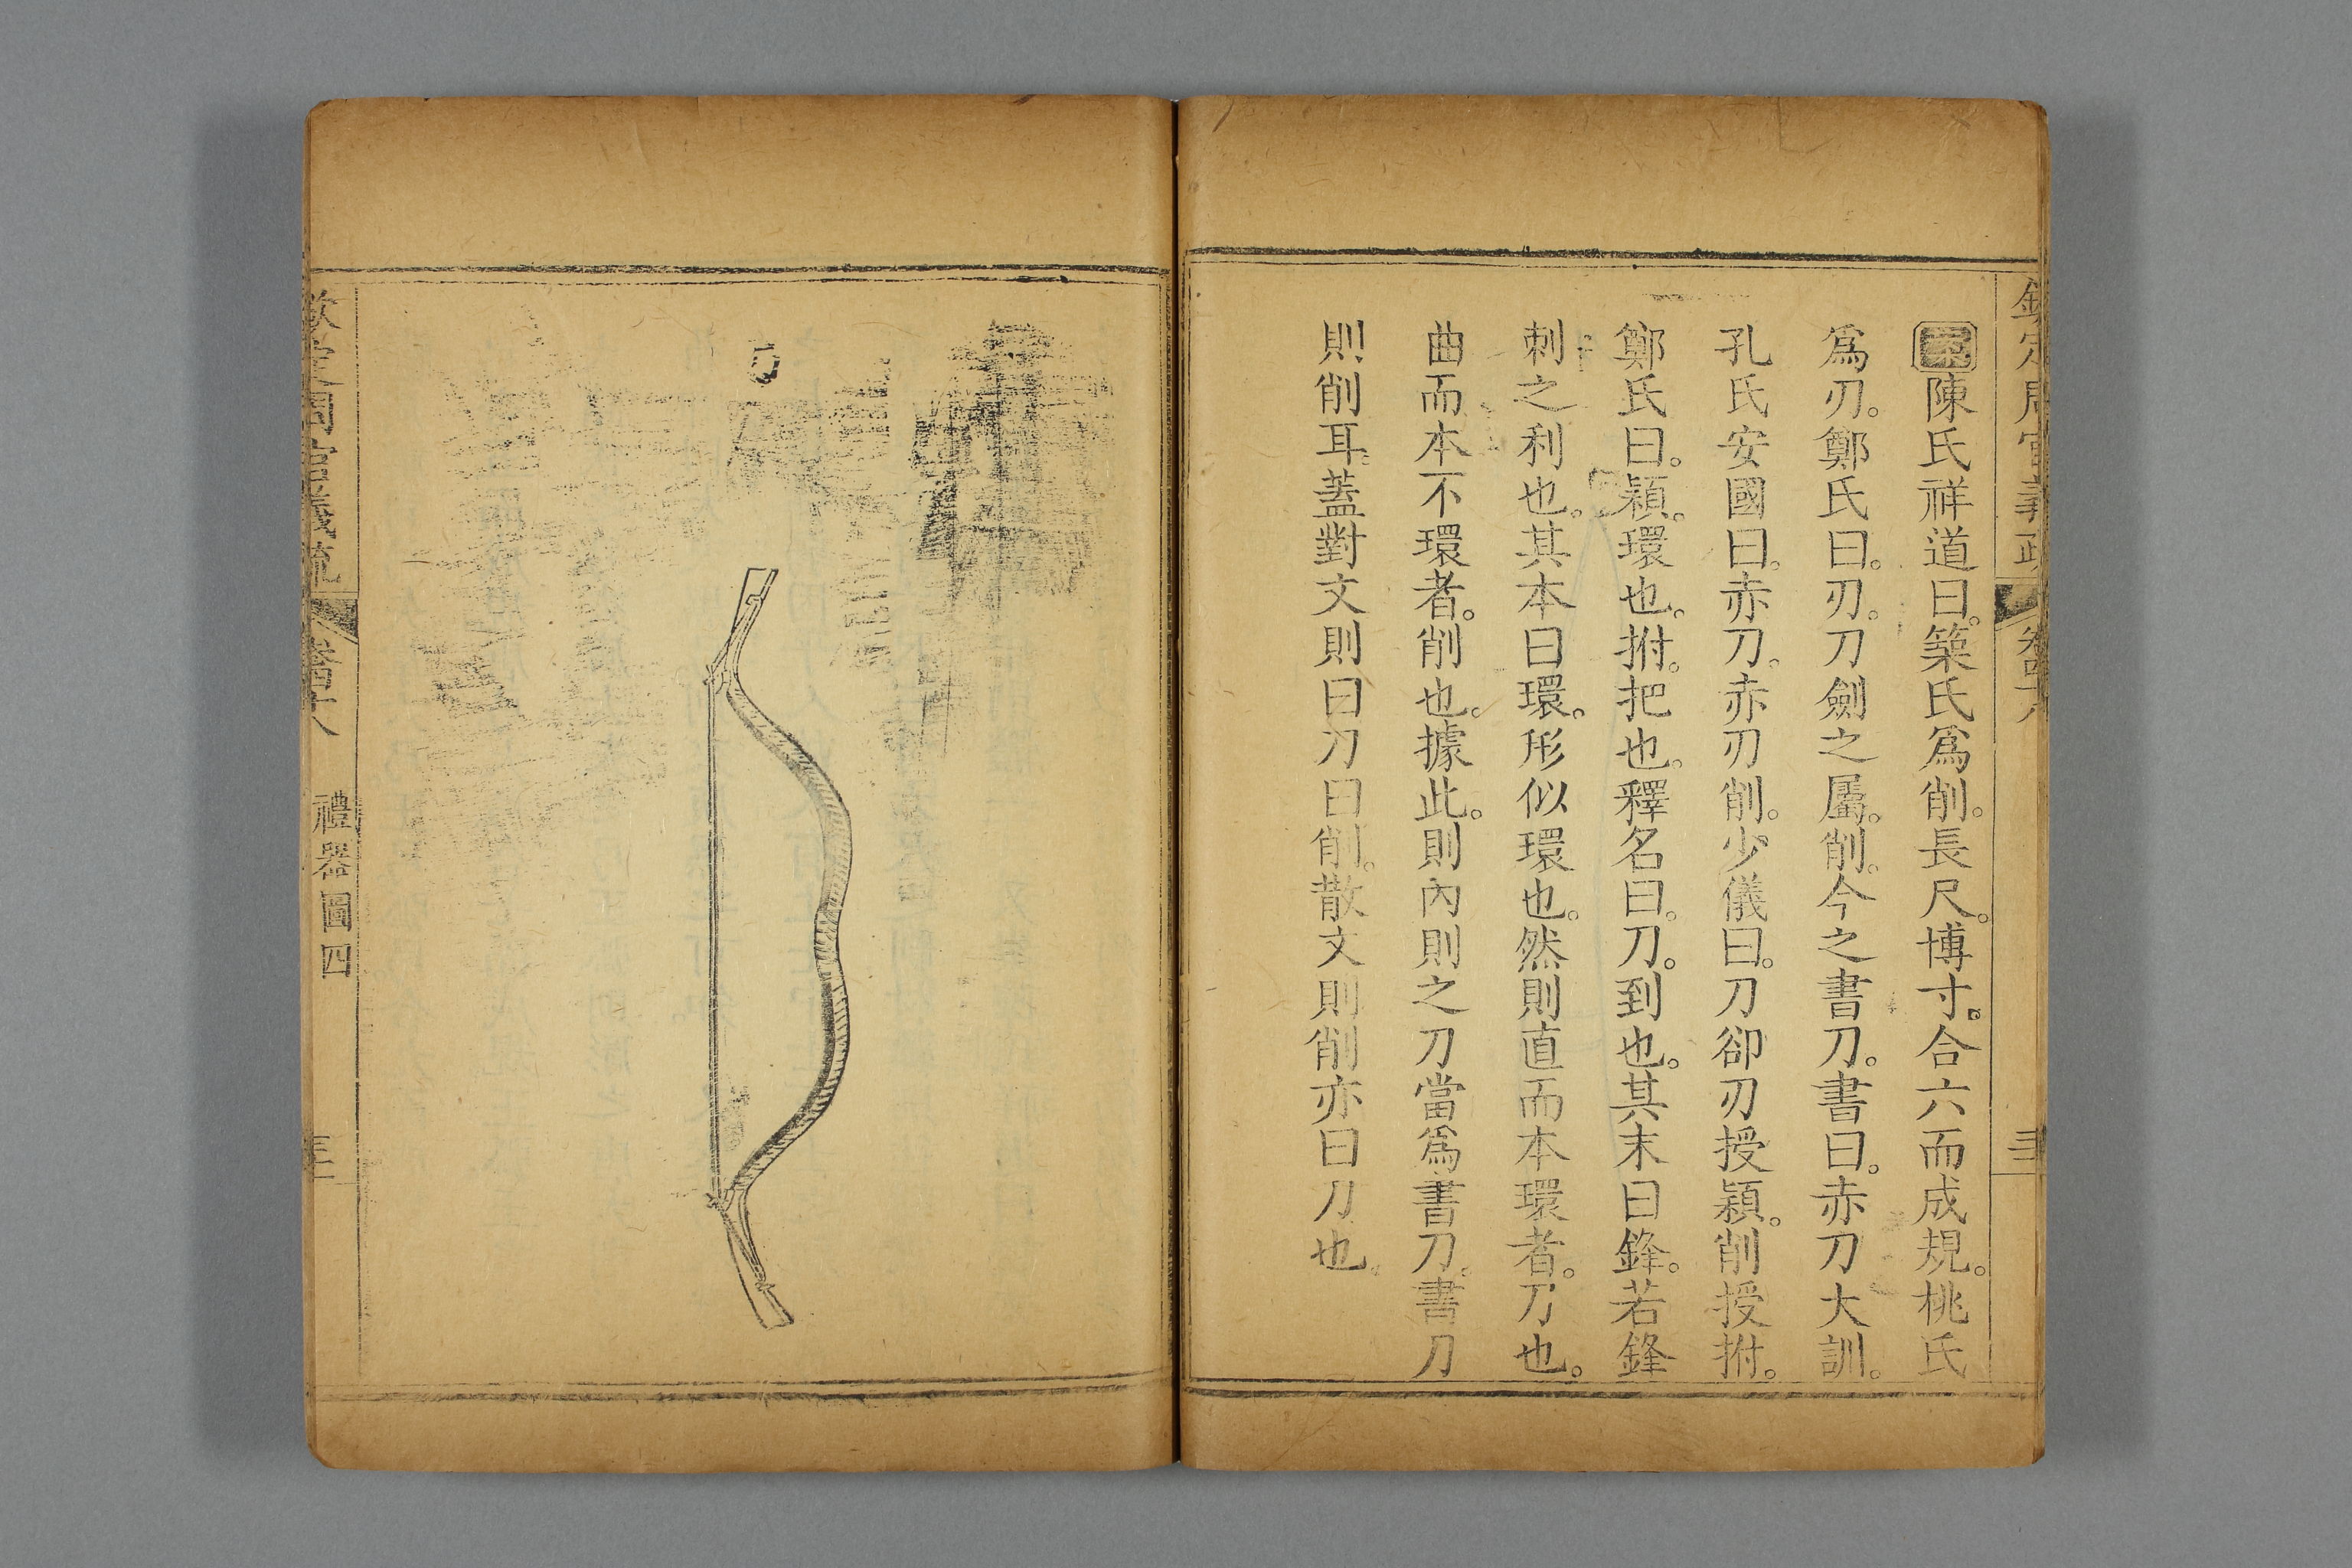 陳氏祥道曰。築氏爲削。長尺。博寸。合六而成規。桃氏
爲刃。鄭氏曰。刃。刀劍之屬。削。今之書刀。書曰。赤刀大訓。
孔氏安國曰。赤刀。赤刃削。少儀曰。刀卻刃授穎。削授拊。
鄭氏曰。穎。環也。拊。把也。釋名曰。刀。到也。其末曰鋒。若鋒
刺之利也。其本曰環。形似環也。然則直而本環者。刀也。
曲而本不環者。削也。據此。則內則之刀當爲書刀。書刀
則削耳。蓋對文則曰刀曰削。散文則削亦曰刀也。
弓
禮器圖四